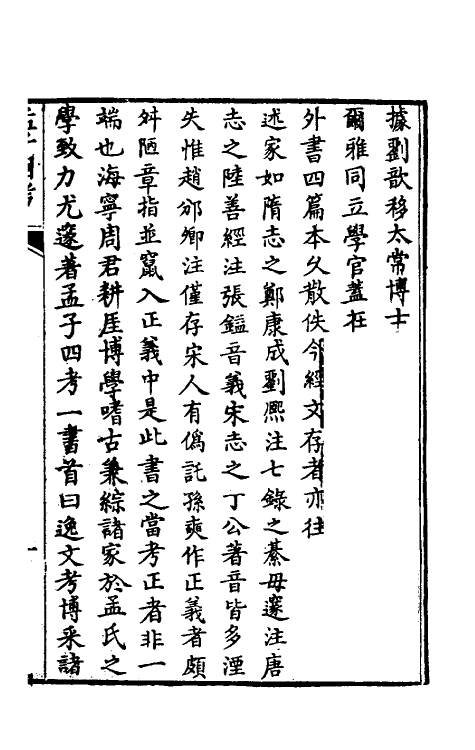 據劉歆移太常博士
爾雅同立學官蓋在
外書四篇本久散佚今經文存者亦往
述家如隋志之鄭康成劉熙注七錄之綦毋邃注唐
志之陸善經注張鎰音義宋志之丁公著音皆多湮
失惟趙邠卿注僅存宋人有僞託孫奭作正義者頗
舛陋章指並竄入正義中是此書之當考正者非一
端也海寧周君耕厓博學嗜古兼綜諸家於孟氏之
學致力尤邃著孟子四考一書首曰逸文考博采諸
孟子四考
一